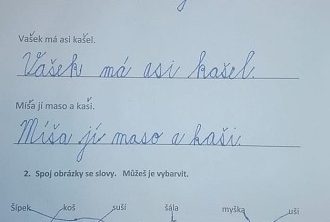 Vašek má asi kašel.
Vašek má asi kašel.
Míša jí maso a kaši.
Míša jí maso a kaši.
2. Spoj obrázky se slovy. Můžeš je vybarvit.
Šípek koš suší šála myška uši